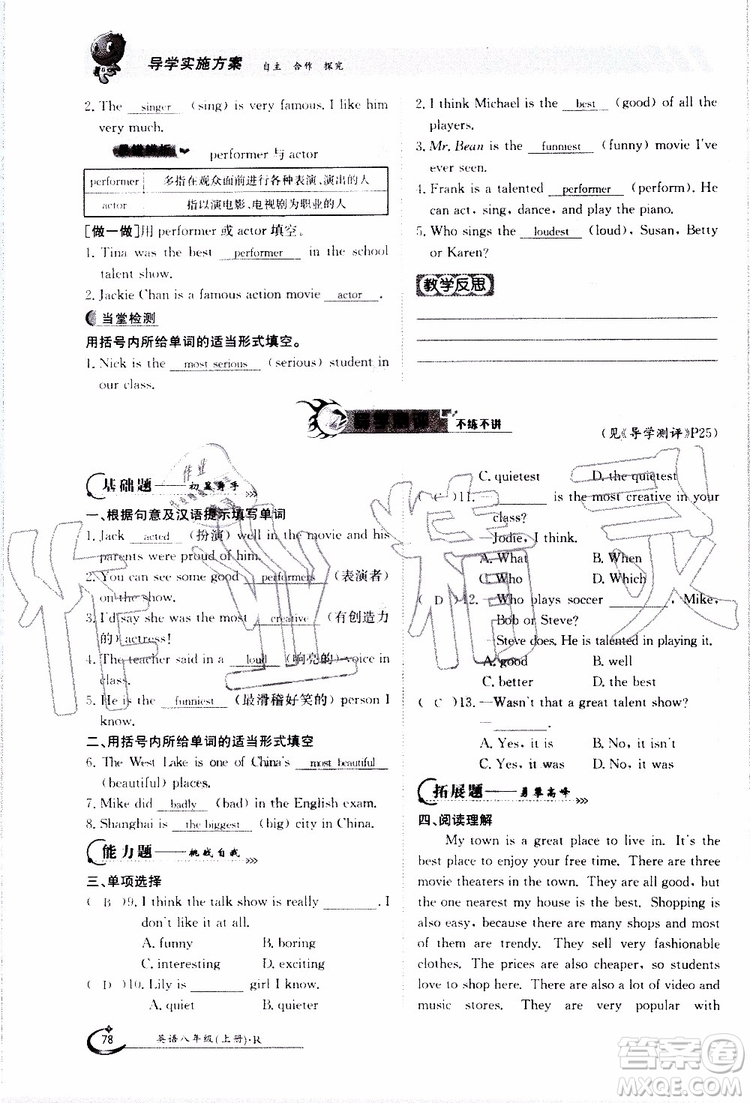 导学实施方案 自主 合作 探究
2. The singer (sing) is very famous. I like him
very much.
performer 与 actor
performer 多指在观众面前进行各种表演、演出的人
actor 指以演电影、电视剧为职业的人
[做一做]用 performer 或 actor 填空。
1. Tina was the best performer in the school
talent show.
2. Jackie Chan is a famous action movie actor .
当堂检测
用括号内所给单词的适当形式填空。
1. Nick is the most serious (serious) student in
our class.
2. I think Michael is the best (good) of all the
players.
3. Mr. Bean is the funniest (funny) movie I've
ever seen.
4. Frank is a talented performer (perform). He
can act, sing, dance, and play the piano.
5. Who sings the loudest (loud), Susan, Betty
or Karen?
教学反思
导学测评 不练不讲
(见《导学测评》P25)
基础题 初显身手
一、根据句意及汉语提示填写单词
1. Jack acted (扮演) well in the movie and his
parents were proud of him.
2. You can see some good performers (表演者)
on the show.
3. I'd say she was the most creative (有创造力
的) actress!
4. The teacher said in a loud (响亮的) voice in
class.
5. He is the funniest (最滑稽好笑的) person I
know.
二、用括号内所给单词的适当形式填空
6. The West Lake is one of China's most beautiful
(beautiful) places.
7. Mike did badly (bad) in the English exam.
8. Shanghai is the biggest (big) city in China.
能力题 挑战自我
三、单项选择
( B )9. I think the talk show is really ____. I
don't like it at all.
A. funny B. boring
C. interesting D. exciting
( D )10. Lily is ____ girl I know.
A. quiet B. quieter
C. quietest D. the quietest
( C )11. —____ is the most creative in your
class?
—Jodie, I think.
A. What B. When
C. Who D. Which
( D )12. —Who plays soccer ____, Mike,
Bob or Steve?
—Steve does. He is talented in playing it.
A. good B. well
C. better D. the best
( C )13. —Wasn't that a great talent show?
—____.
A. Yes, it is B. No, it isn't
C. Yes, it was D. No, it was
拓展题 勇攀高峰
四、阅读理解
My town is a great place to live in. It's the
best place to enjoy your free time. There are three
movie theaters in the town. They are all great, but
the one nearest my house is the best. Shopping is
also easy, because there are so many shops and all
of them are trendy. They sell beautiful fashionable
clothes. The prices are also cheaper, so students
love to go there. There are a lot of video and
music stores. They are popular with many
78 英语八年级(上册)·R
作业精灵
答案圈